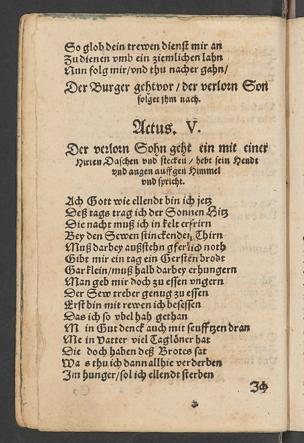 So glob dein trewen dienst mir an
Zu dienen vmb ein ziemlichen lahn
Nun folg mir/vnd thu nacher gahn/
Der Burger gehtvor/der verlorn Son
folget jhm nach.
Actus. V.
Der verlorn Sohn geht ein mit einer
Hirten Daschen vnd stecken/hebt sein Hendt
vnd augen auff gen Himmel
vnd spricht.
Ach Gott wie ellendt bin ich jetz
Deß tags trag ich der Sonnen Hitz
Die nacht muß ich in kelt erfrirn
Bey den Sewen stinckenden Thirn
Muß darbey außstehn gferlich noth
Gibt mir ein tag ein Gersten brodt
Gar klein/muß halb darbey erhungern
Man geb mir doch zu essen vngern
Der Sew treber genug zu essen
Erst bin mit rewen ich besessen
Das ich so vbel hab gethan
M in Gut denck auch mit seufftzen dran
Me in Vatter viel Taglöner hat
Die doch haben deß Brotes sat
Wa s thu ich dann allhie verderben
Im hunger/sol ich ellendt sterben
Ich